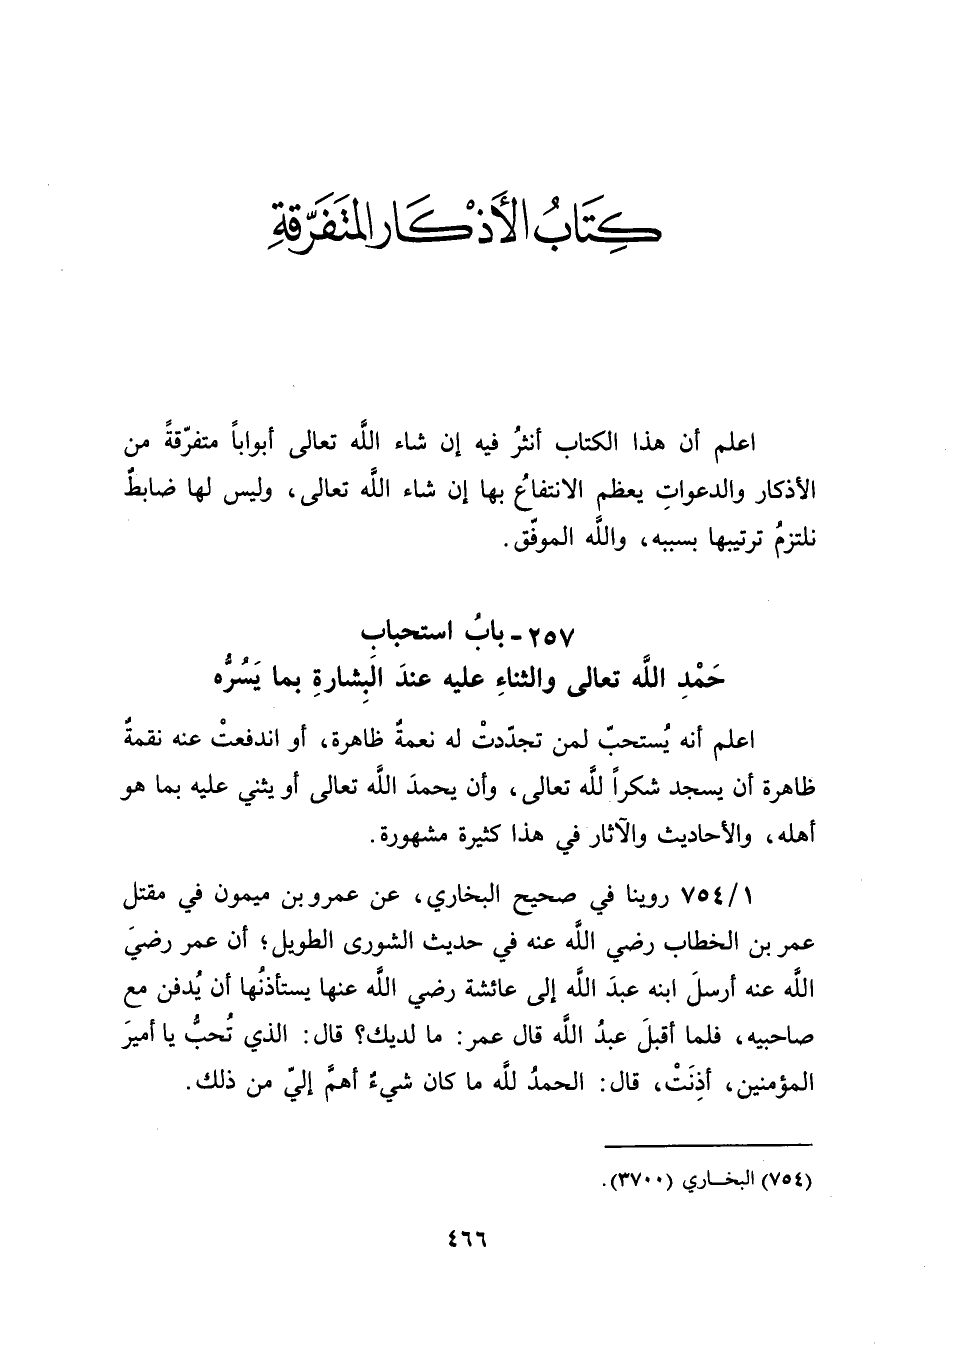 كِتَابُ الأَذْكَارِ المتَفَرِّقَةِ
اعلم أن هذا الكتاب أنثرُ فيه إن شاء اللَّه تعالى أبواباً متفرّقةً من
الأذكار والدعواتِ يعظم الانتفاعُ بها إن شاء اللَّه تعالى، وليس لها ضابطٌ
نلتزمُ ترتيبها بسببه، واللَّه الموفّق.
٢٥٧ - بابُ استحبابِ
حَمْدِ اللَّه تعالى والثناءِ عليه عندَ البِشارةِ بما يَسُرُّه
اعلم أنه يُستحبّ لمن تجدّدتْ له نعمةٌ ظاهرة، أو اندفعتْ عنه نقمةٌ
ظاهرة أن يسجد شكراً للَّه تعالى، وأن يحمدَ اللَّه تعالى أو يثني عليه بما هو
أهله، والأحاديث والآثار في هذا كثيرة مشهورة.
٧٥٤/١ روينا في صحيح البخاري، عن عمرو بن ميمون في مقتل
عمر بن الخطاب رضي اللَّه عنه في حديث الشورى الطويل؛ أن عمر رضيَ
اللَّه عنه أرسلَ ابنه عبدَ اللَّه إلى عائشة رضي اللَّه عنها يستأذنُها أن يُدفن مع
صاحبيه، فلما أقبلَ عبدُ اللَّه قال عمر: ما لديك؟ قال: الذي تُحبُّ يا أميرَ
المؤمنين، أذِنَتْ، قال: الحمدُ للَّه ما كان شيءٌ أهمَّ إليّ من ذلك.
(٧٥٤) البخاري (٣٧٠٠).
٤٦٦